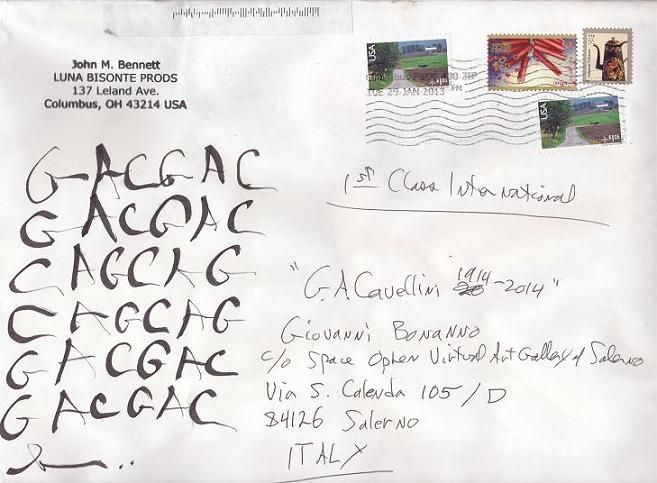 John M. Bennett
LUNA BISONTE PRODS
137 Leland Ave.
Columbus, OH 43214 USA
USA
USA
USA
TUE 29 JAN 2013 PM
1st Class International
GACGAC
GACGAC
CAGCAG
CAGCAG
GACGAC
GACGAC
"G.A.Cavellini 1914-2014"
Giovanni Bonanno
c/o Space Ophen Virtual Art Gallery of Salerno
Via S. Calenda 105/D
84126 Salerno
ITALY